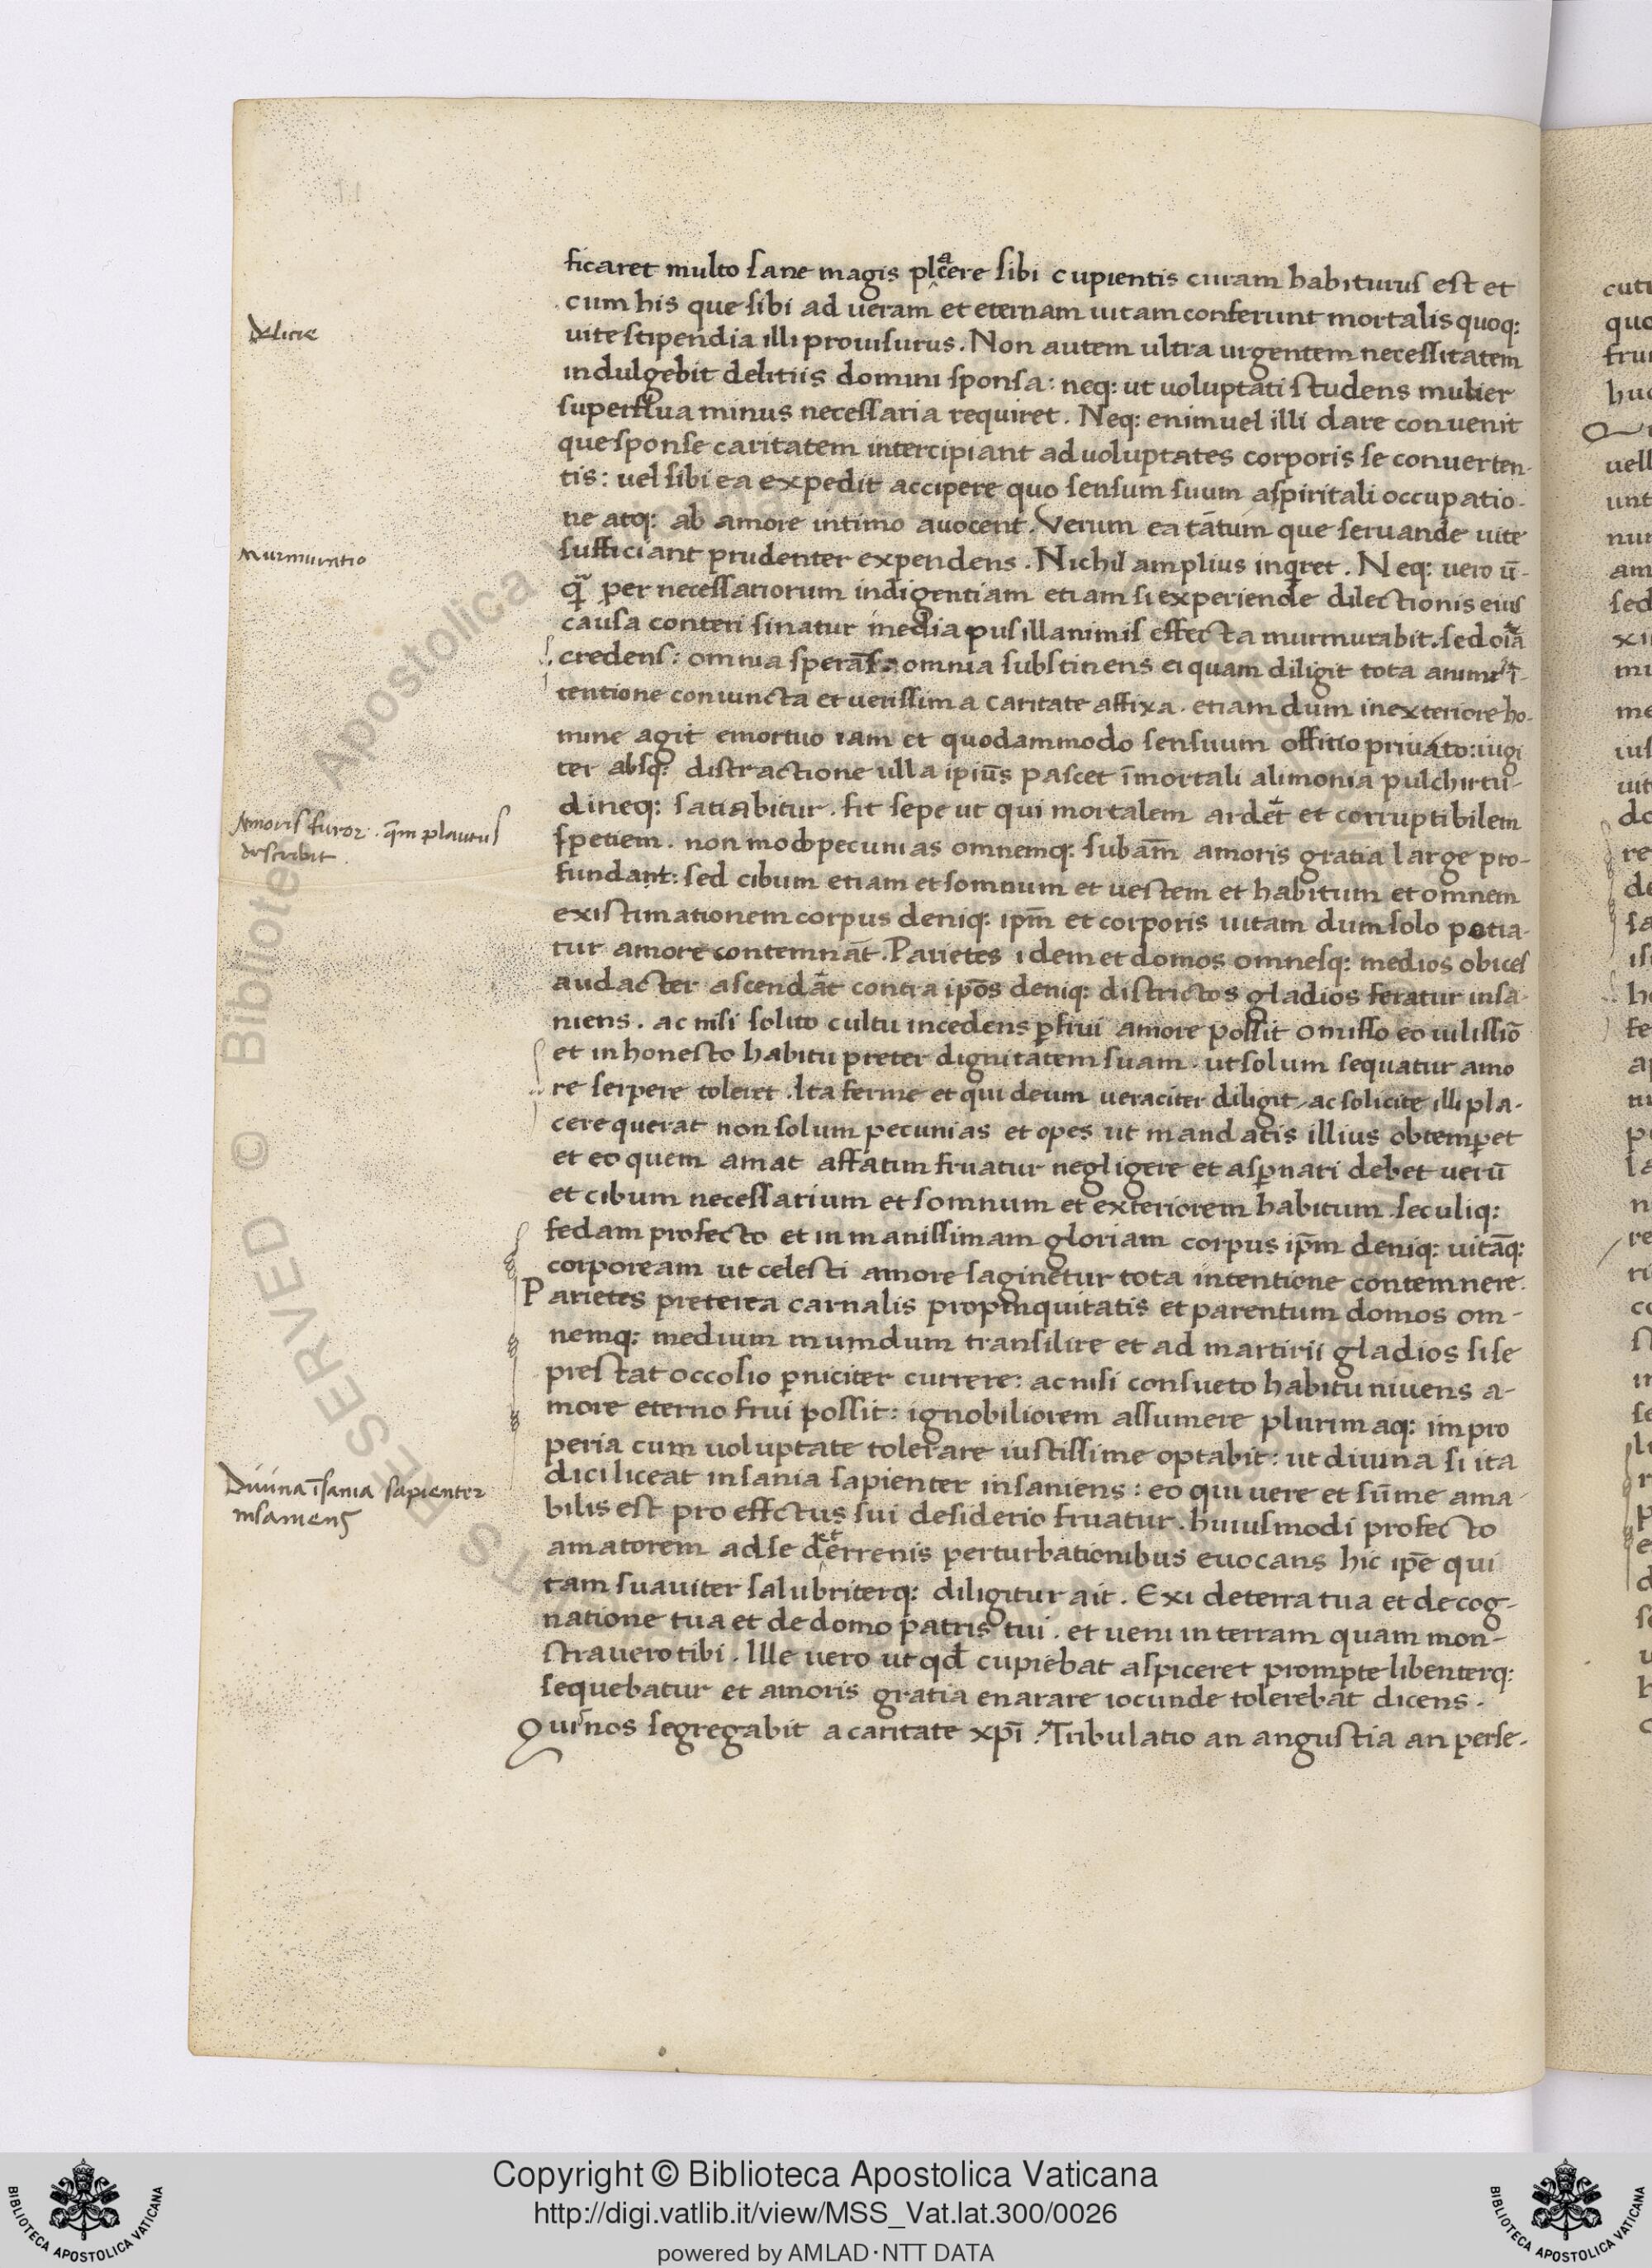 ficaret multo sane magis placere sibi cupientis curam habiturus est et
cum his que sibi ad ueram et eternam uitam conferunt mortalis quoq:
Delitie
uite stipendia illi prouisurus. Non autem ultra urgentem necessitatem
indulgebit delitiis domini sponsa: neq: ut uoluptati studens mulier
superflua minus necessaria requiret. Neq: enim uel illi dare conuenit
que sponse caritatem intercipiant ad uoluptates corporis se conuerten-
tis: uel sibi ea expedit accipere quo sensum suum a spiritali occupatio-
ne atq: ab amore intimo auocent. Verum ea tātum que seruande uite
Murmuratio
sufficiant prudenter expendens. Nichil amplius inqret. Neq: uero ū-
q̄ per necessariorum indigentiam etiam si experiende dilectionis eius
causa conteri sinatur media pusillanimis effecta murmurabit. sed oīa
credens: omnia sperās: omnia substinens ei quam diligit tota animi ī-
tentione coniuncta et uerissima caritate affixa. etiam dum in exteriore ho-
mine agit emortuo iam et quodammodo sensuum offitio priuato: iugi
ter absq: distractione ulla ipius pascet īmortali alimonia pulchritu-
dineq: satiabitur. fit sepe ut qui mortalem ardet et corruptibilem
Amoris furor. quem plautus
describit.
spetiem. non modo pecunias omnemq: subam̄ amoris gratia large pro-
fundant: sed cibum etiam et somnum et uestem et habitum et omnem
existimationem corpus deniq: ipm̄ et corporis uitam dum solo potia-
tur amore contemnāt. Parietes idem et domos omnesq: medios obices
audacter ascendāt contra ipōs deniq: districtos gladios feratur insa-
niens. ac nisi solito cultu incedens pfrui amore possit omisso eo uilissiō
et inhonesto habitu preter dignitatem suam. ut solum sequatur amo
re serpere toleret. Ita ferme et qui deum ueraciter diligit ac solicite illi pla-
cere querat non solum pecunias et opes ut mandatis illius obtemperet
et eo quem amat affatim fruatur negligere et aspnari debet uerū
et cibum necessarium et somnum et exteriorem habitum. seculiq:
fedam profecto et inmanissimam gloriam corpus ipm̄ deniq: uitāq:
corpoream ut celesti amore saginetur tota intentione contemnere.
Parietes preterea carnalis propinquitatis et parentum domos om-
nemq: medium mundum transilire et ad martirii gladios si se
prestat occosio pniciter currere: ac nisi consueto habitu niuens a-
more eterno frui possit: ignobiliorem assumere plurimaq: impro
peria cum uoluptate tolerare iustissime optabit: ut diuina si ita
Diuina īsania sapienter
insaniens
dici liceat insania sapienter insaniens: eo qui uere et sūme ama-
bilis est pro effectus sui desiderio fruatur. huiusmodi profecto
amatorem ad se de terrenis perturbationibus euocans hic ipē qui
tam suauiter salubriterq: diligitur ait. Exi de terra tua et de cog-
natione tua et de domo patris tui. et ueni in terram quam mon-
strauero tibi. Ille uero ut qd cupiebat aspiceret prompte libenterq:
sequebatur et amoris gratia enarare iocunde tolerebat dicens.
Qui nos segregabit a caritate xpī? Tribulatio an angustia an perse-
Copyright © Biblioteca Apostolica Vaticana
http://digi.vatlib.it/view/MSS_Vat.lat.300/0026
powered by AMLAD·NTT DATA
BIBLIOTECA APOSTOLICA VATICANA
BIBLIOTECA APOSTOLICA VATICANA